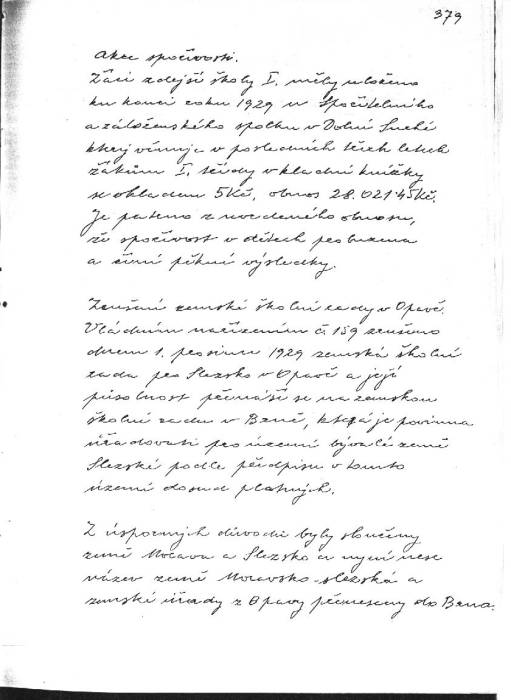 379
Akce spořivosti.
Žáci zdejší školy I. měly uloženo
ku konci roku 1929 u Spořitelního
a záloženského spolku v Dolní Suché
který věnuje v posledních třech letech
žákům I. třídy vkladní knížky
se vkladem 5Kč, obnos 28.021.45Kč.
Je patrno z uvedeného obnosu,
že spořivost v dětech probuzena
a činí pěkné výsledky.
Zrušení zemské školní rady v Opavě.
Vládním nařízením č. 159 zrušeno
dnem 1. prosince 1929 zemská školní
rada pro Slezsko v Opavě a její
působnost přenáší se na zemskou
školní radu v Brně, která je povinna
úřadovati pro území bývalé země
Slezské podle předpisu v tomto
území dosud platných.
Z úsporných důvodů byly sloučeny
země Morava a Slezsko a nyní nese
název země Moravsko-slezská a
zemské úřady z Opavy přeneseny do Brna.